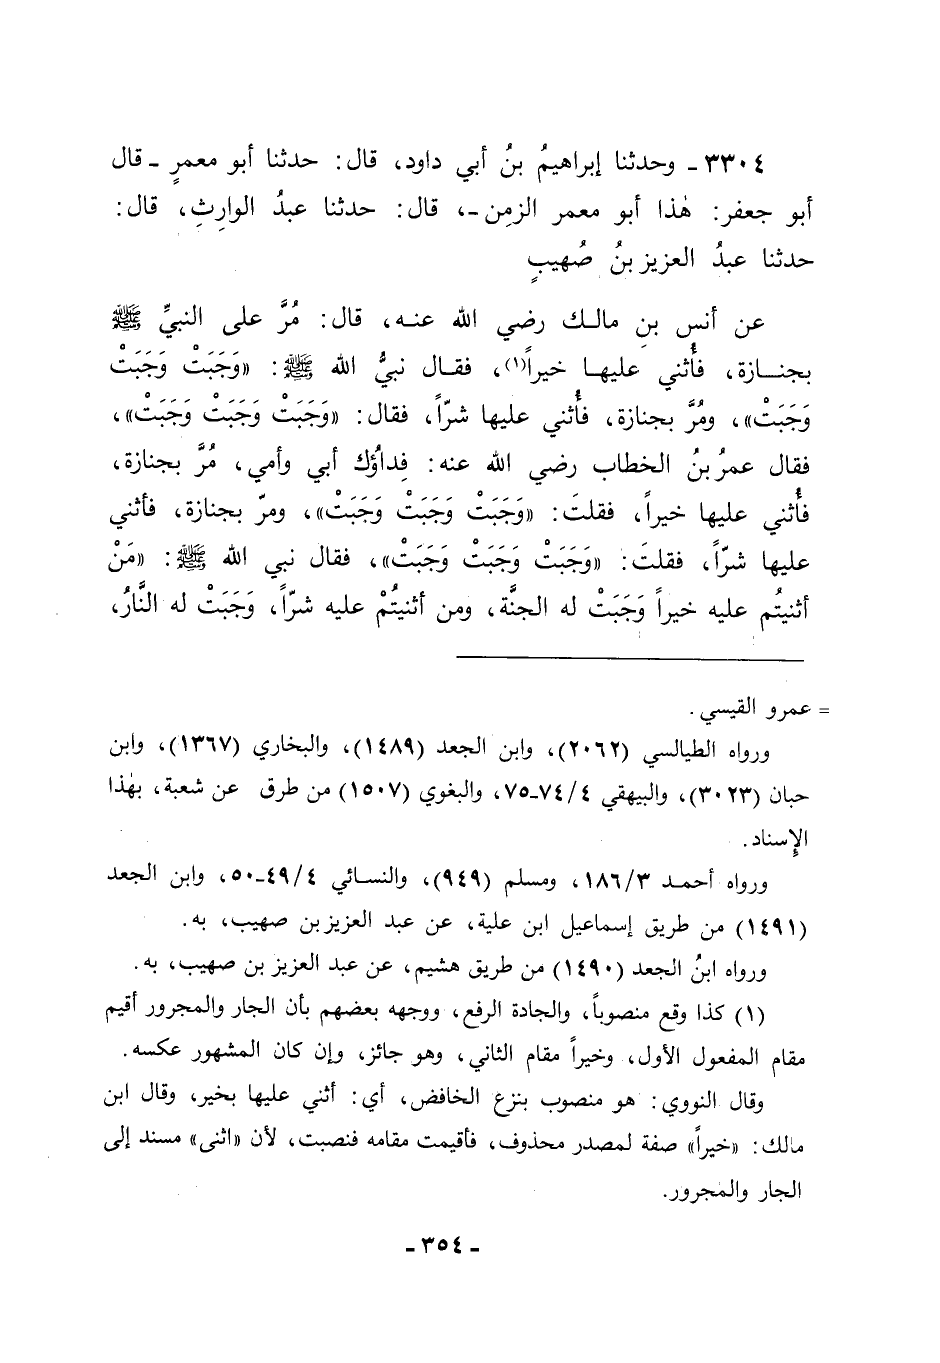 ٣٣٠٤ ـ وحدثنا إبراهيمُ بنُ أبي داود، قال: حدثنا أبو معمرٍ ـ قال
أبو جعفر: هٰذا أبو معمر الزمِن ـ، قال: حدثنا عبدُ الوارِثِ، قال:
حدثنا عبدُ العزيز بنُ صُهيبٍ
عن أنس بنِ مالك رضي الله عنه، قال: مُرَّ على النبيِّ ﷺ
بجنازة، فأُثني عليها خيراً(١)، فقال نبيُّ الله ﷺ: «وَجَبَتْ وَجَبَتْ
وَجَبَتْ»، ومُرَّ بجنازة، فأُثني عليها شرّاً، فقال: «وَجَبَتْ وَجَبَتْ وَجَبَتْ»،
فقال عمرُ بنُ الخطاب رضي الله عنه: فِداؤك أبي وأمي، مُرَّ بجنازة،
فأُثني عليها خيراً، فقلتَ: «وَجَبَتْ وَجَبَتْ وَجَبَتْ»، ومرّ بجنازة، فأثني
عليها شرّاً، فقلتَ: «وَجَبَتْ وَجَبَتْ وَجَبَتْ»، فقال نبي الله ﷺ: «مَنْ
أثنيتُم عليه خيراً وَجَبَتْ له الجنَّة، ومن أثنيتُمْ عليه شرّاً، وَجَبَتْ له النَّارُ،
= عمرو القيسي.
ورواه الطيالسي (٢٠٦٢)، وابن الجعد (١٤٨٩)، والبخاري (١٣٦٧)، وابن
حبان (٣٠٢٣)، والبيهقي ٧٤/٤ـ٧٥، والبغوي (١٥٠٧) من طرق عن شعبة، بهٰذا
الإسناد.
ورواه أحمد ١٨٦/٣، ومسلم (٩٤٩)، والنسائي ٤٩/٤ـ٥٠، وابن الجعد
(١٤٩١) من طريق إسماعيل ابن علية، عن عبد العزيز بن صهيب، به.
ورواه ابنُ الجعد (١٤٩٠) من طريق هشيم، عن عبد العزيز بن صهيب، به.
(١) كذا وقع منصوباً، والجادة الرفع، ووجهه بعضهم بأن الجار والمجرور أقيم
مقام المفعول الأول، وخيراً مقام الثاني، وهو جائز، وإن كان المشهور عكسه.
وقال النووي: هو منصوب بنزع الخافض، أي: أثني عليها بخير، وقال ابن
مالك: «خيراً» صفة لمصدر محذوف، فأقيمت مقامه فنصبت، لأن «اثنى» مسند إلى
الجار والمجرور.
ـ ٣٥٤ ـ